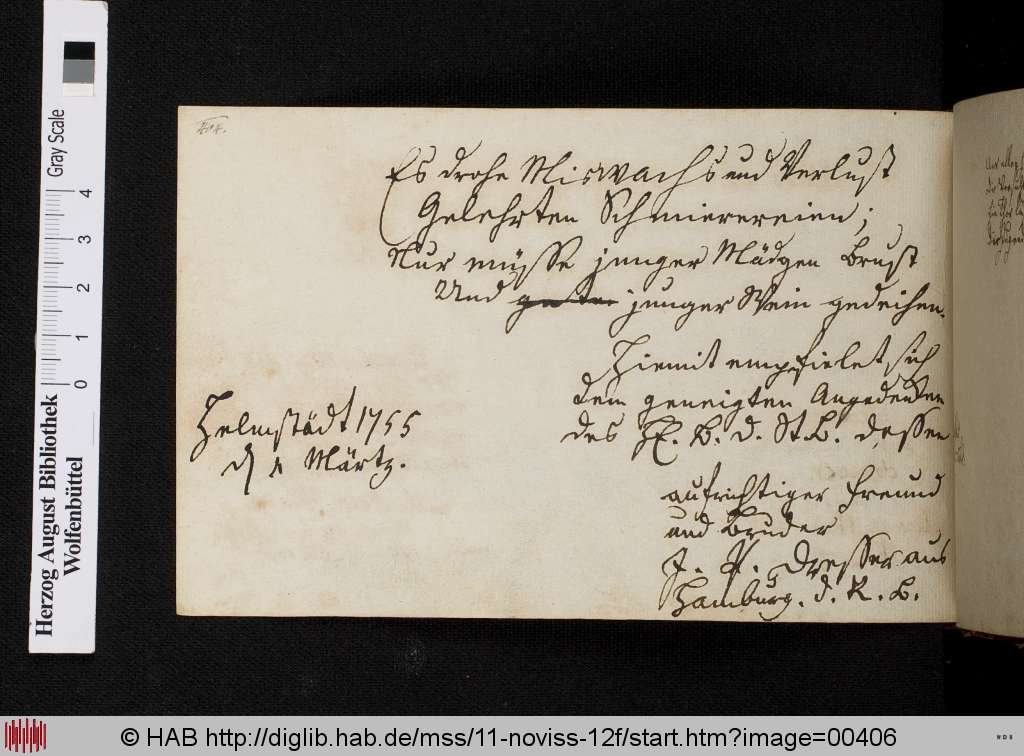 Es drohe Miswachs und Verlust
Gelehrten Schmierereien;
Nur müsse junger Mädgen Brust
Und guter junger Wein gedeihen.
Hiemit empfielet sich
dem geneigten Angedenken
des H. B. d. St. B. dessen
aufrichtiger Freund
und Bruder
Dresser aus
Hamburg. d. R. B.
Helmstädt 1755
d 1 Märtz.
Herzog August Bibliothek
Wolfenbüttel
0 1 2 3 4
Gray Scale
© HAB http://diglib.hab.de/mss/11-noviss-12f/start.htm?image=00406